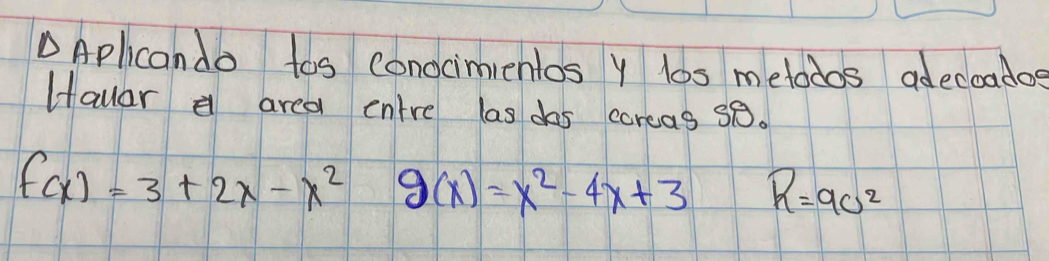 D Aplicando los conocimientos y los metodos adecuados
Hallar el area entre las dos curvas SO.
f(x) = 3 + 2x - x² g(x) = x² - 4x + 3 R = 9u²